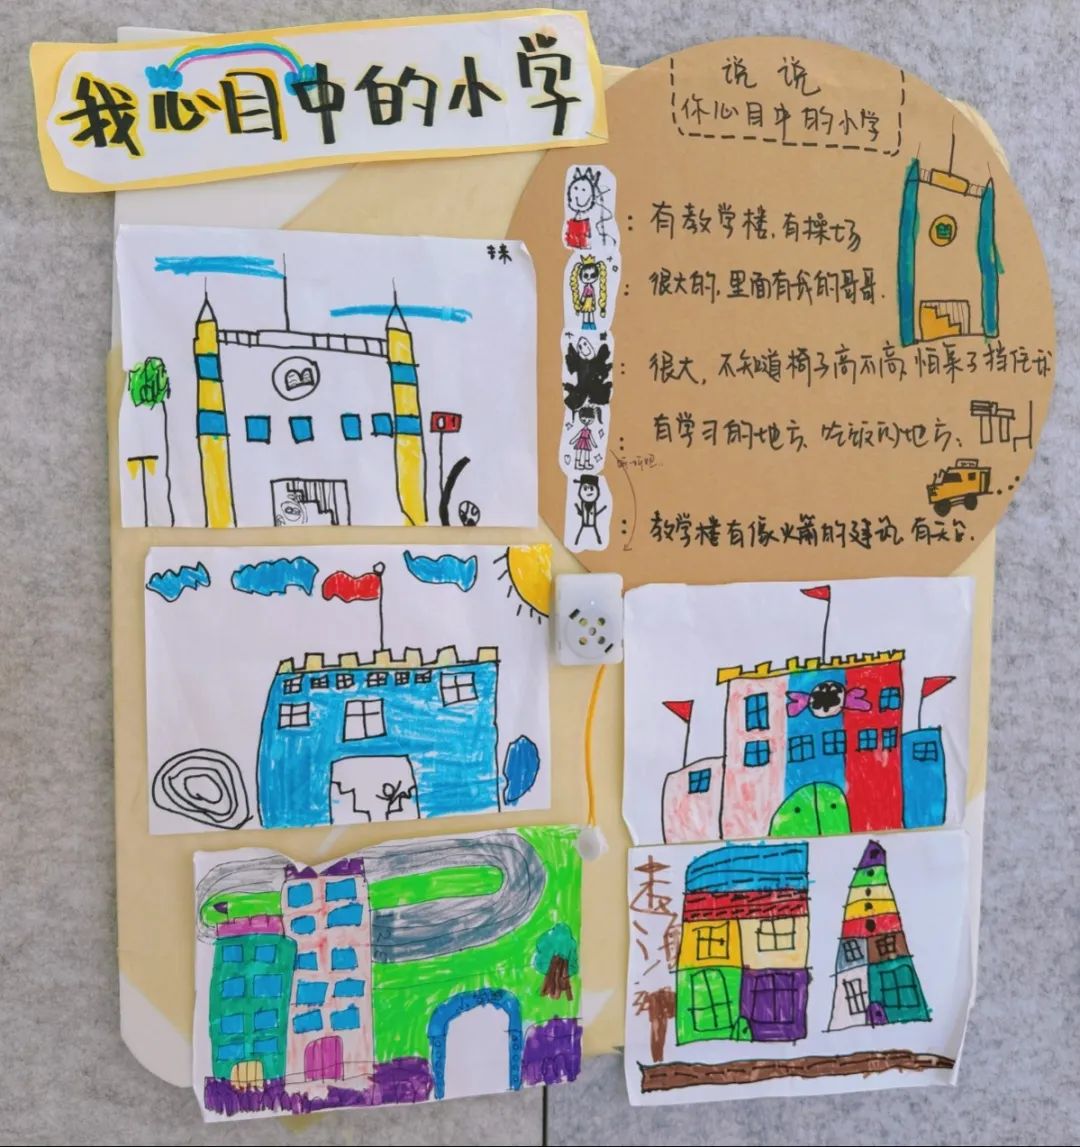 我心目中的小学
说说
你心目中的小学
：有教学楼，有操场
：很大的，里面有我的哥哥.
：很大，不知道椅子高不高，怕桌子挡住我
：有学习的地方、吃饭的地方、
：教学楼有像火箭的建筑，有天台.